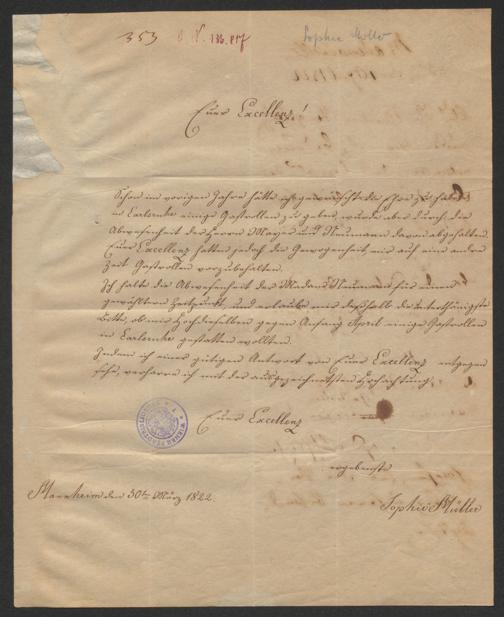 353 I. N. 136.817
Sophie Müller
Euer Excellenz!
Schon im vorigen Jahre hatte ich gewünscht die Ehre zu haben
in Carlsruhe einige Gastrollen zu geben, wurde aber durch die
Abwesenheit des Herrn Mayer und Neumann davon abgehalten.
Euer Excellenz hatten jedoch die Gewogenheit mir auf eine andere
Zeit Gastrollen vorzubehalten.
Ich halte die Abwesenheit der Madame Neumann für einen
gewählten Zeitpunkt und erlaube mir deßhalb die unterthänigste
Bitte, ob mir Hochdieselben gegen Anfang April einige Gastrollen
in Carlsruhe gestatten wollten.
Indem ich einer gütigen Antwort von Euer Excellenz entgegen
sehe, verharre ich mit der ausgezeichnetsten Hochachtung.
Euer Excellenz
ergebenste
Mannheim den 30ten März 1822.
Sophie Müller